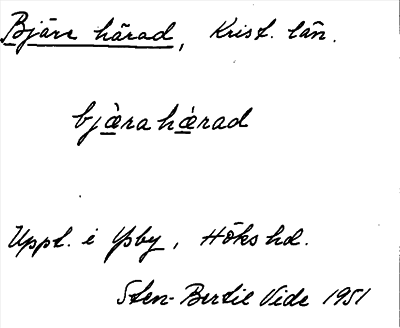 Bjäre härad, Krist. län.
bjàrahàrad
Uppl. i Ysby, Höks hd.
Sten-Bertil Vide 1951